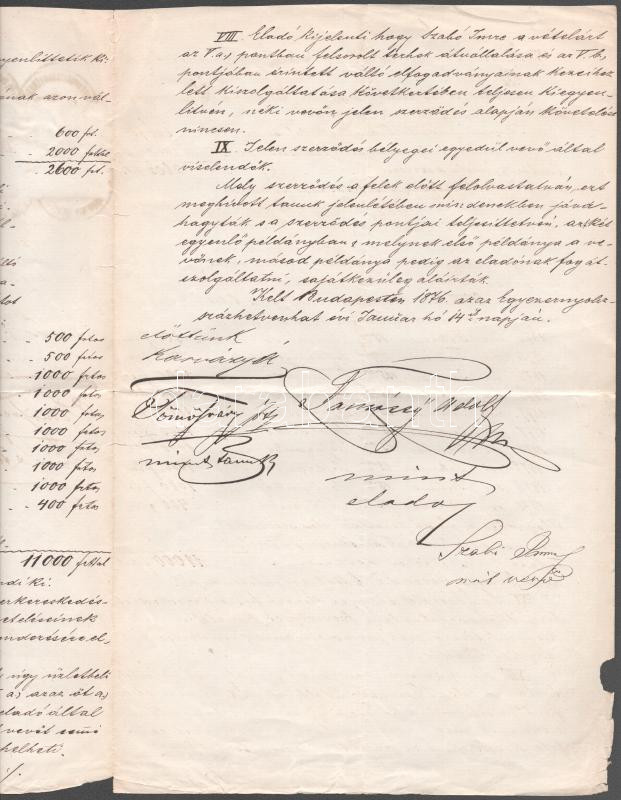 yenlittetik ki-
ának azon vál-
600 frt.
2000 
2600 frt.
500 frtos
500 frtos
1000 frtos
1000 frtos
1000 frtos
1000 frtos
1000 frtos
1000 frtos
1000 frtos
400 frtos
11000 frttal
ndi ki.
erkereskedés-
eteléseinek
el-
úgy üzletbeli
a, azaz öt a,
eladó által
vevőt semmi
helheti.
VIII. Eladó kijelenti hogy Szabó Imre a vételárt
az V.a, pontban felsorolt terhek átvállalása és az V.b,
pontjában érintett váltó elfogadványainak kezeihez
lett kiszolgáltatása következtében teljesen kiegyen-
litvén, neki vevőn jelen szerződés alapján követelése
nincsen.
IX. Jelen szerződés bélyegei egyedül vevő által
viselendők.
Mely szerződés a felek előtt felolvastatván, ezt
meghivott tanuk jelenlétében mindenekben jóvá-
hagyták s a szerződés pontjai teljesittetvén, az két
egyenlő példányban, melynek első példánya a ve-
vőnek, másod példánya pedig az eladónak fog át-
szolgáltatni, sajátkezüleg aláirták.
Kelt Budapesten 1876, azaz Egyezernyolcz-
százhetvenhat évi Januar hó 14 napján.
előttünk
mint tanuk
Adolf
mint
eladó
Szabó Imre
mint vevő